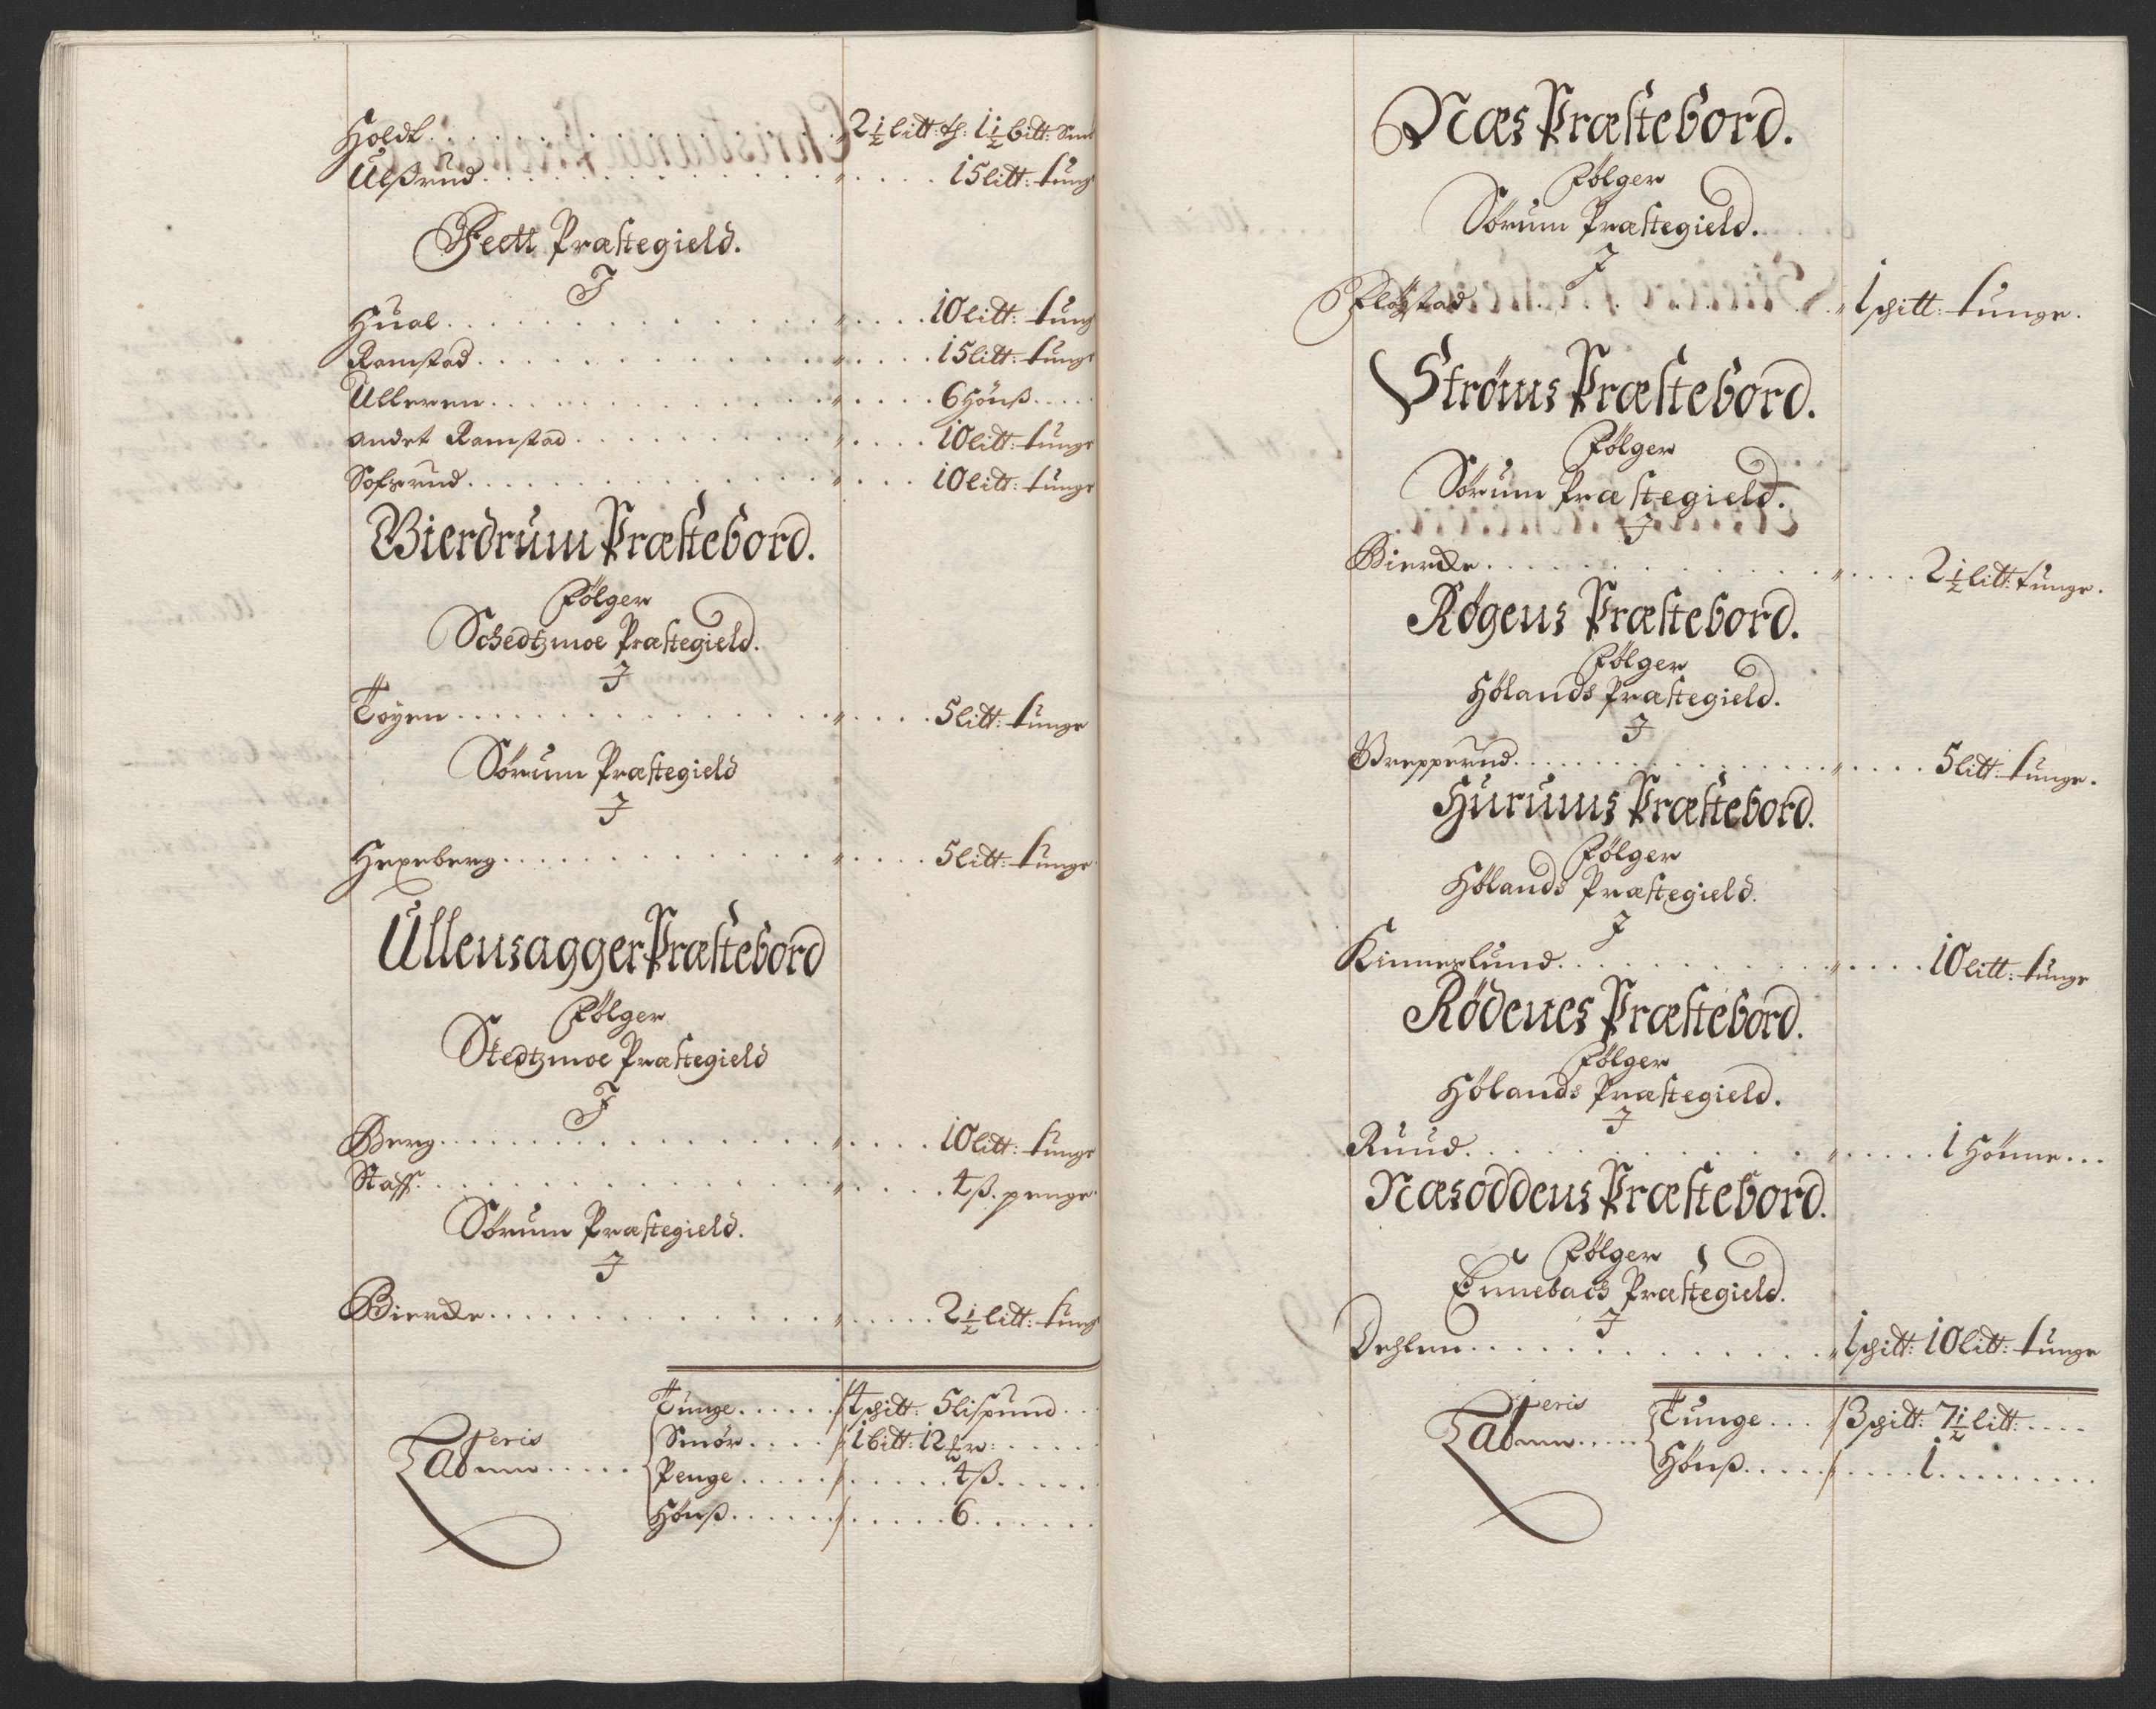 Holdt . . . . 2½ litt: th: 1½ bitt: Smør
Ulßrud . . . . 15 litt: tunge
Feett Præstegield.
I
Hual . . . . 10 litt: tunge
Ramstad . . . . 15 litt: tunge
Ulleren . . . . 6 Hönß . . .
andet Ramstad . . . . 10 litt: tunge
Sofsrud . . . . 10 litt: tunge
Gierdrum Præstebord.
Fölger
Schedtzmoe Præstegield.
I
Töyen . . . . 5 litt: tunge
Sörum Præstegield
I
Hexeberg . . . . 5 litt: tunge
Ullensagger Præstebord
Fölger
Skedtzmoe Præstegield
I
Berg . . . . 10 litt: tunge
Staff . . . . 4 ß. penge
Sörum Præstegield.
I
Biercke . . . . 2½ litt: tunge
Lateris
Tunge . . . . 4 schitt: 5 lispund . .
Smör . . . . 1 bitt: 12 . . .
Penge . . . . 4 ß . . .
Hönß . . . . 6 . . .
Næs Præstebord.
Fölger
Sörum Præstegield.
I
Flögstad . . . . 1 schitt: tunge.
Ströms Præstebord.
Fölger
Sörum Præstegield.
I
Biercke . . . . 2½ litt: tunge.
Røgens Præstebord.
Fölger
Hölands Præstegield.
I
Grepperud . . . . 5 litt: tunge.
Hurums Præstebord.
Fölger
Hölands Præstegield.
I
Kinneslund . . . . 10 litt: tunge
Rödenes Præstebord.
Fölger
Hölands Præstegield.
I
Ruud . . . . 1 Hönne . . .
Næsoddens Præstebord.
Fölger
Ennebach Præstegield.
I
Dehlen . . . . 1 schitt: 10 litt: tunge
Lateris
Tunge . . . 3 schitt: 7½ litt: . . .
Hönß . . . . 1 . . . .